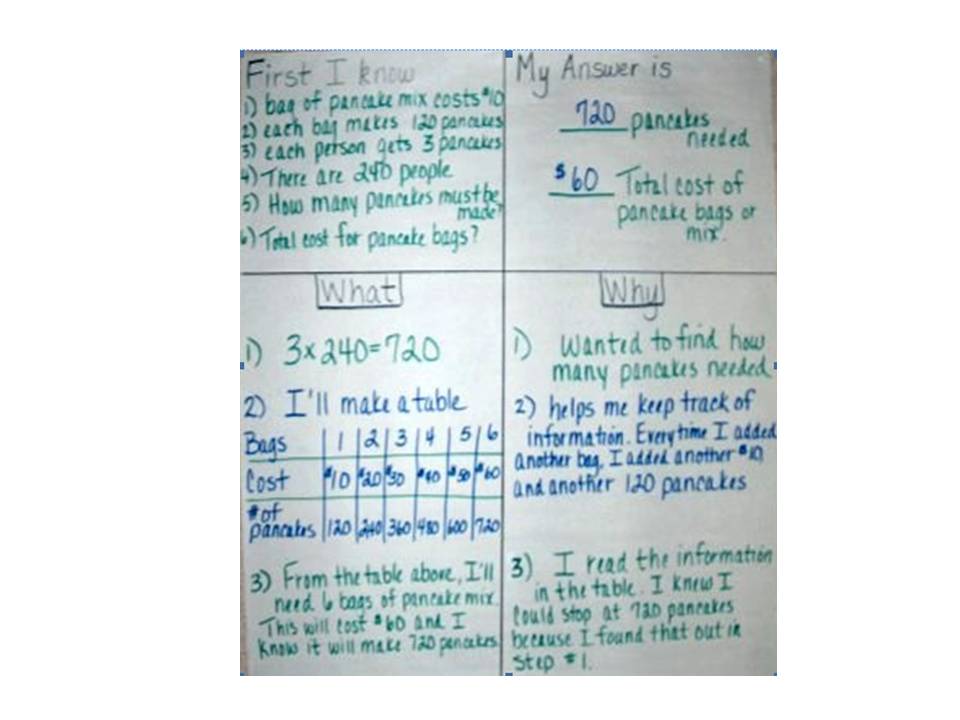 First I know
1) bag of pancake mix costs $10
2) each bag makes 120 pancakes
3) each person gets 3 pancakes
4) There are 240 people
5) How many pancakes must be
made?
6) Total cost for pancake bags?
My Answer is
720 pancakes
needed
$60 Total cost of
pancake bags or
mix.
What
1) 3x240=720
2) I'll make a table
Bags 1 2 3 4 5 6
Cost $10 $20 $30 $40 $50 $60
# of
pancakes 120 240 360 480 600 720
3) From the table above, I'll
need 6 bags of pancake mix.
This will cost $60 and I
know it will make 720 pancakes.
Why
1) Wanted to find how
many pancakes needed
2) helps me keep track of
information. Everytime I added
another bag, I added another $10,
and another 120 pancakes
3) I read the information
in the table. I knew I
could stop at 720 pancakes
because I found that out in
step #1.